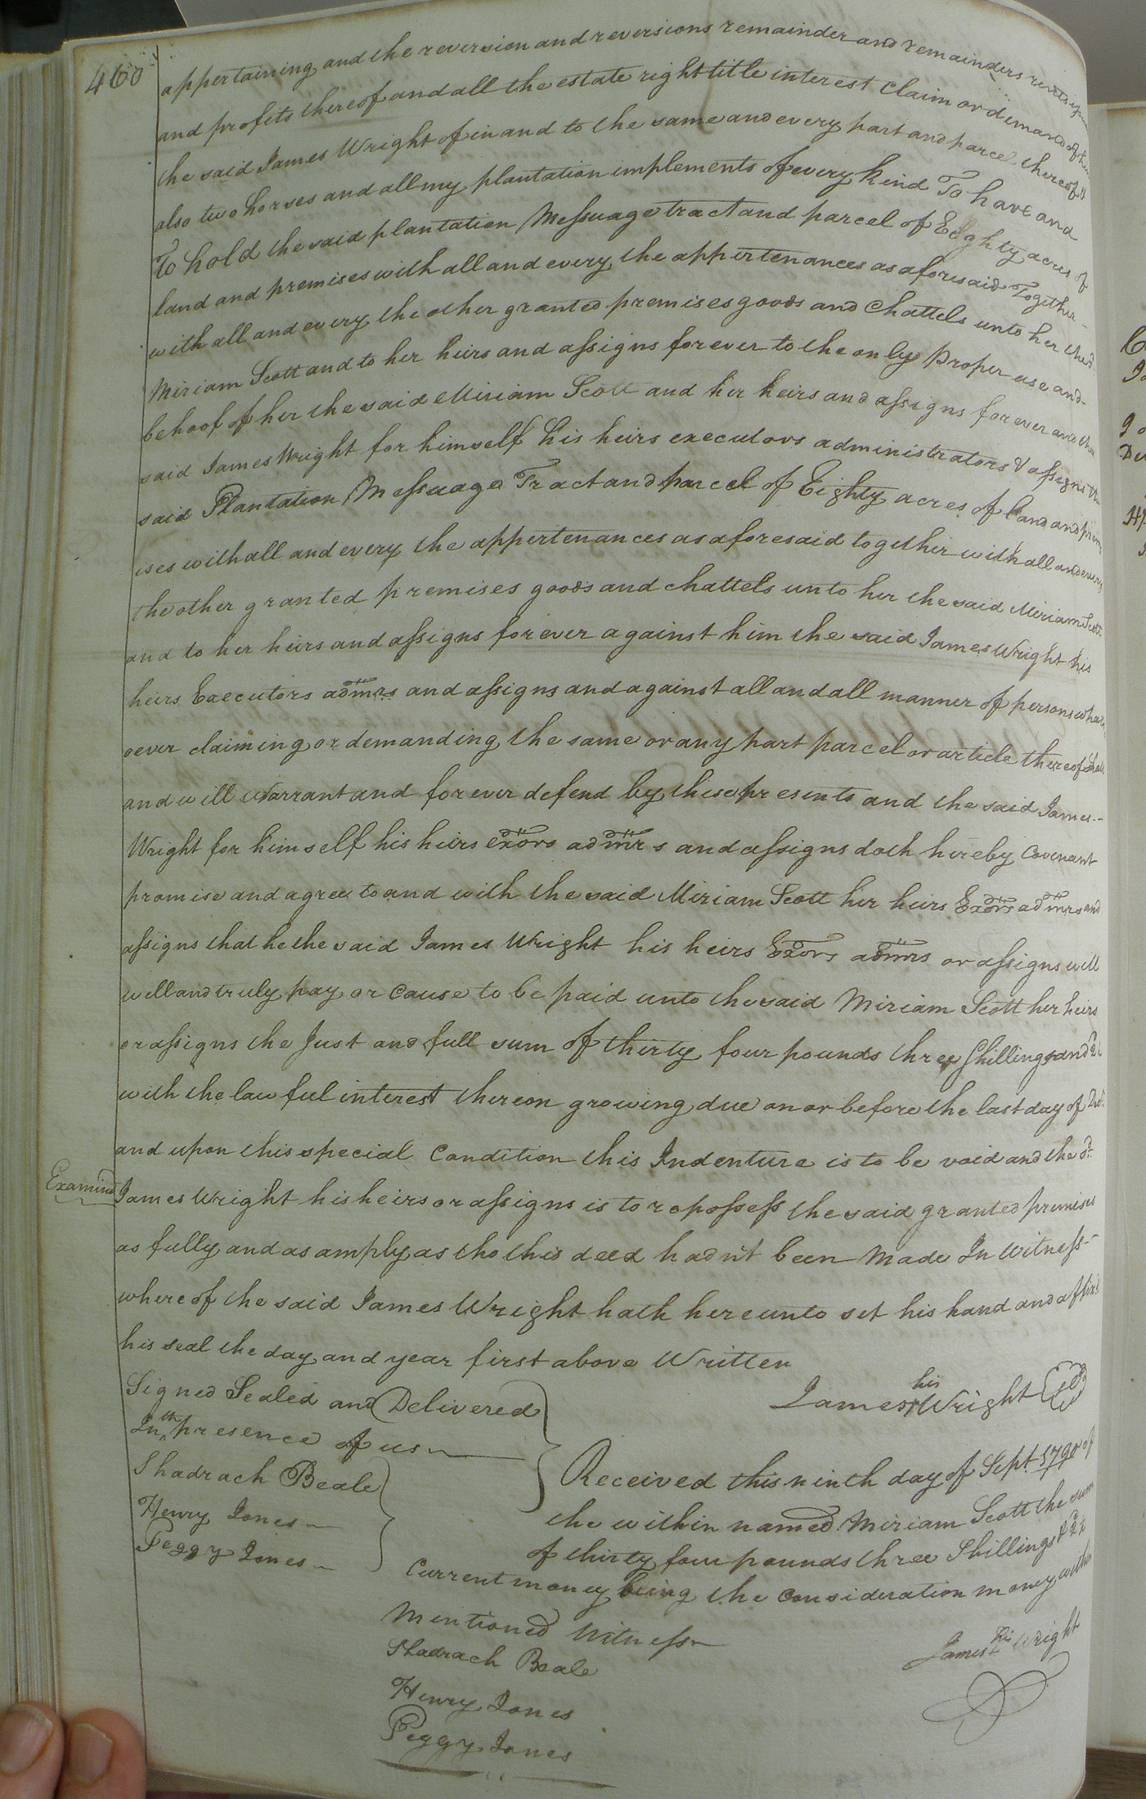 460
appertaining and the reversion and reversions remainder and remainders rents
and profits thereof and all the estate right title interest claim or demand of him
the said James Wright of in and to the same and every part and parcel thereof &
also two horses and all my plantation implements of every kind To have and
To hold the said plantation Messuage tract and parcel of Eighty acres of
land and premises with all and every the appertenances as aforesaid Together
with all and every the other granted premises goods and Chattels unto her the sd
Miriam Scott and to her heirs and assigns forever to the only Proper use and
behoof of her the said Miriam Scott and her heirs and assigns forever and the
said James Wright for himself his heirs executors administrators & assigns the
said Plantation Messuage Tract and parcel of Eighty acres of land and prem
ises with all and every the appertenances as aforesaid together with all and every
the other granted premises goods and chattels unto her the said Miriam Scott
and to her heirs and assigns forever against him the said James Wright his
heirs Executors admrs and assigns and against all and all manner of persons whats
oever claiming or demanding the same or any part parcel or article thereof shall
and will Warrant and forever defend by these presents and the said James
Wright for himself his heirs exors admrs and assigns doth hereby Covenant
promise and agree to and with the said Miriam Scott her heirs Exors admrs and
assigns that he the said James Wright his heirs Exors admrs or assigns will
well and truly pay or cause to be paid unto the said Miriam Scott her heirs
or assigns the Just and full sum of thirty four pounds three Shillings and
with the lawful interest thereon growing due on or before the last day of
and upon this special Condition this Indenture is to be void and the sd
Examined
James Wright his heirs or assigns is to repossess the said granted premises
as fully and as amply as tho this deed hadn't been Made In Witness
whereof the said James Wright hath hereunto set his hand and affixd
his seal the day and year first above Written
Signed Sealed and Delivered
In the presence of us
his
James Wright
Shadrach Beale
Henry Jones
Peggy Jones
Received this ninth day of Sept 1790 of
the within named Miriam Scott the sum
of thirty four pounds three Shillings &
Current money being the Consideration money within
Mentioned Witness
Shadrach Beale
Henry Jones
Peggy Jones
his
James Wright